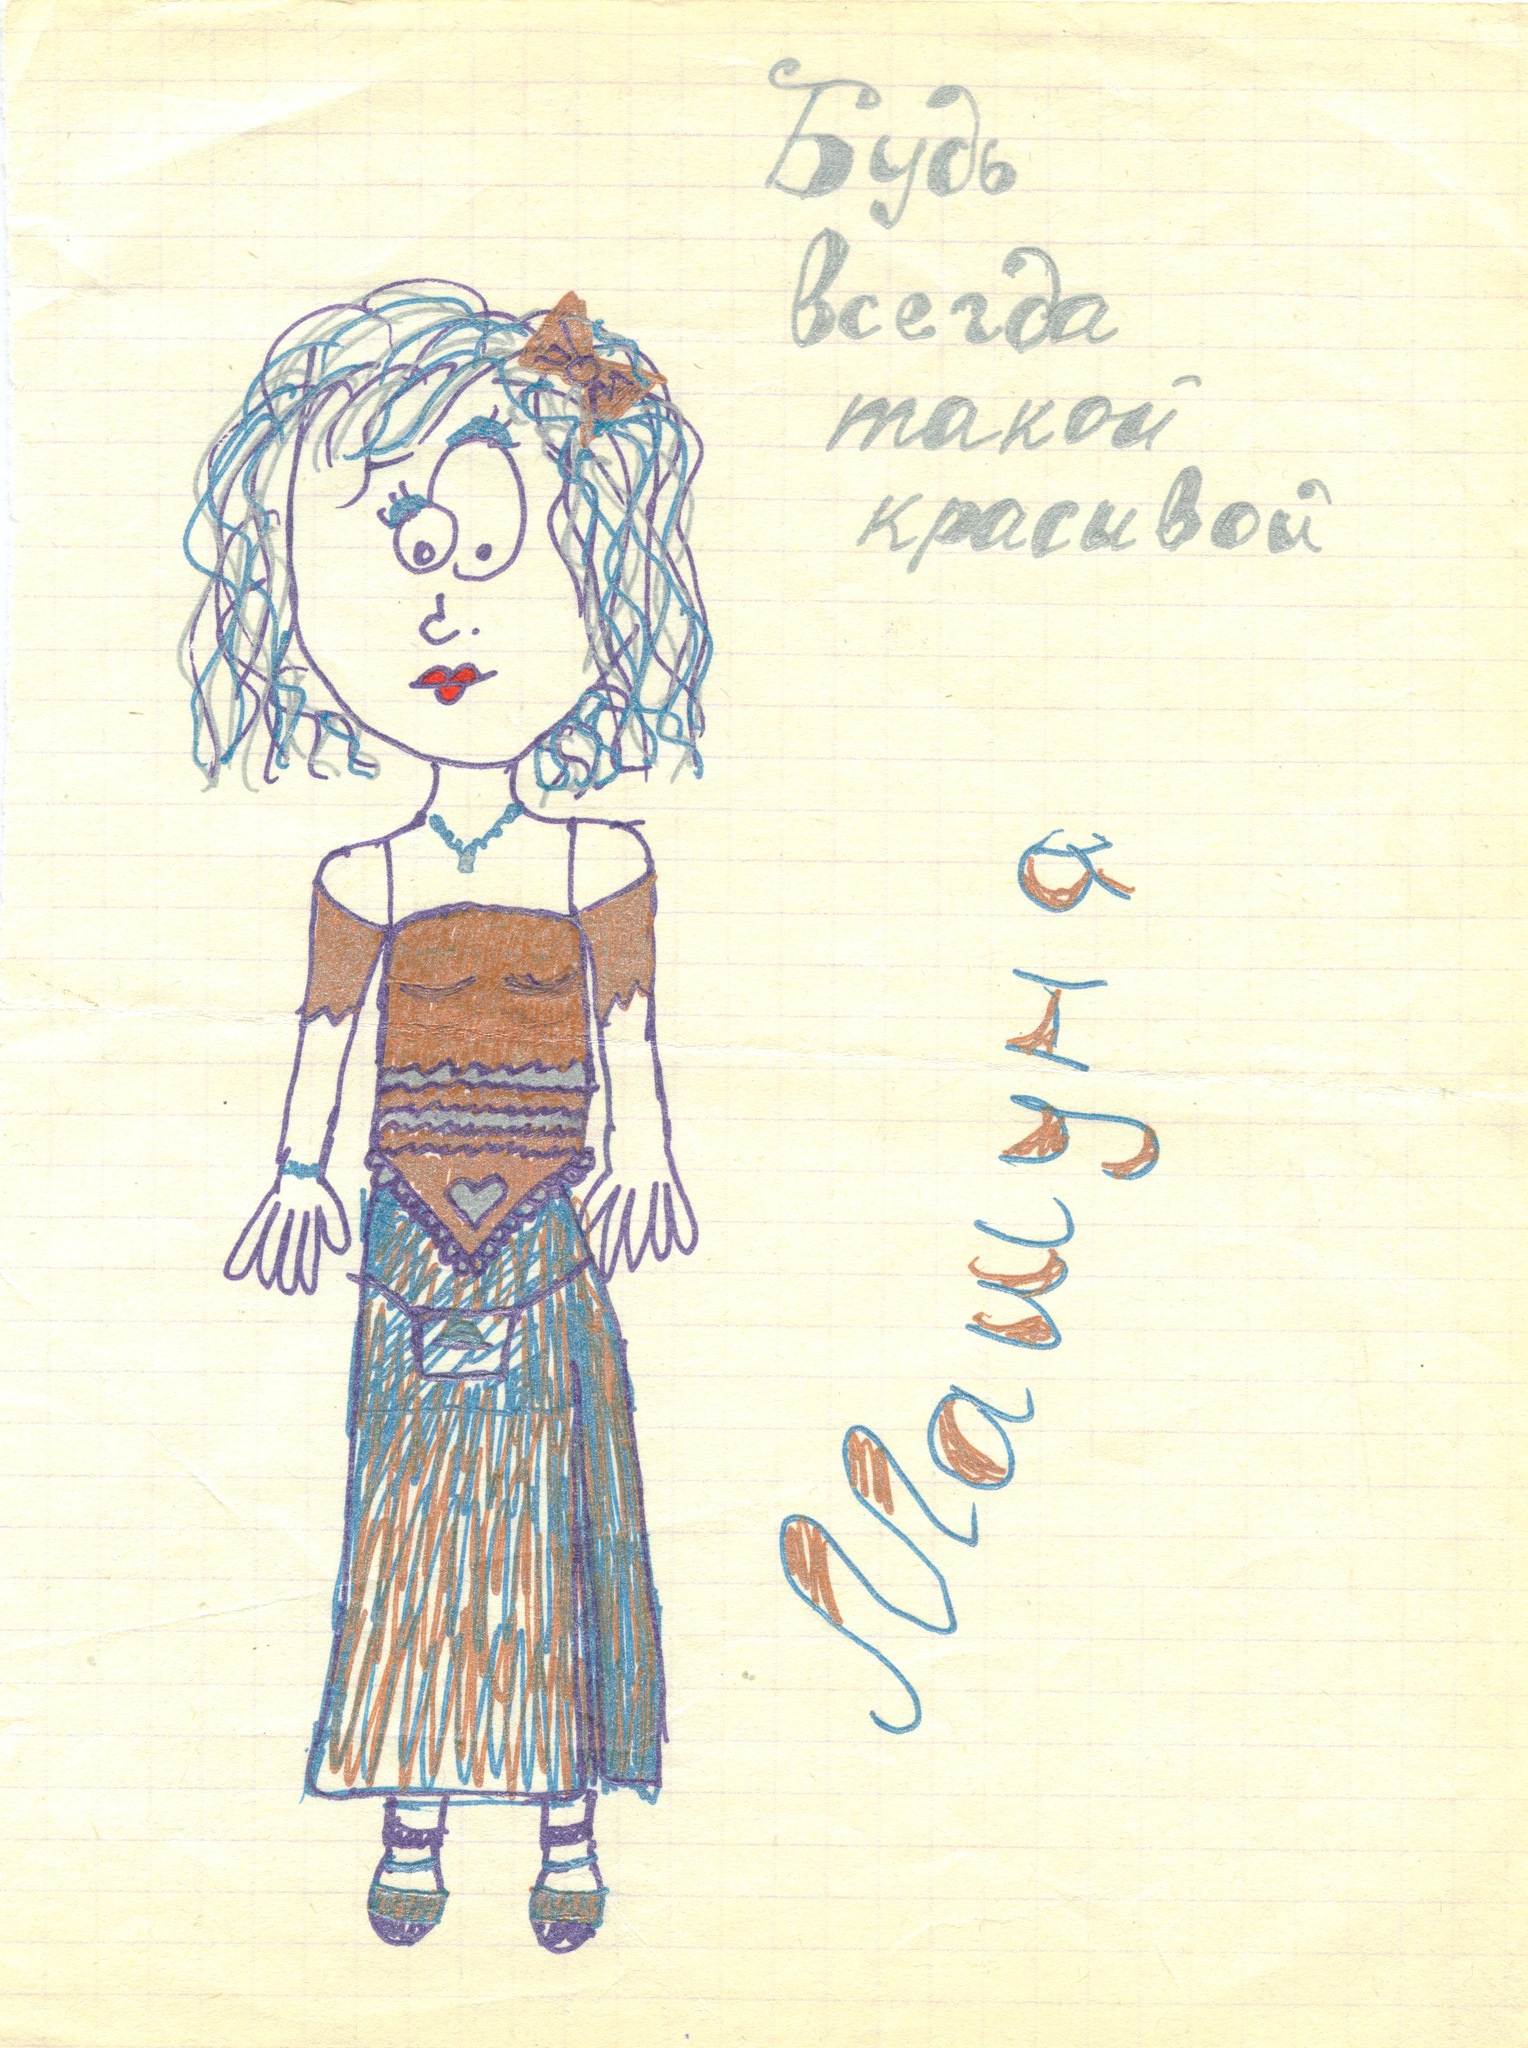 Будь
всегда
такой
красивой
Машуня